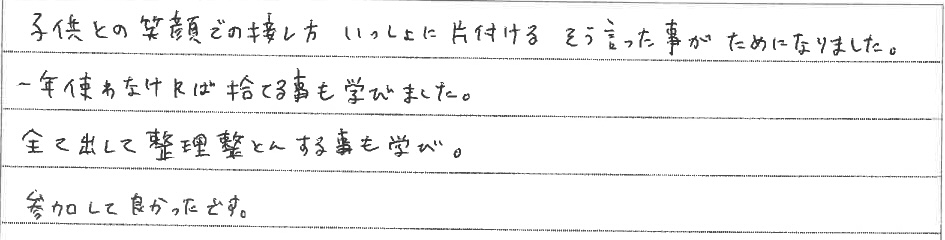 子供との笑顔での接し方 いっしょに片付ける そう言った事がためになりました。
一年使わなければ捨てる事も学びました。
全て出して整理整とんする事も学び。
参加して良かったです。